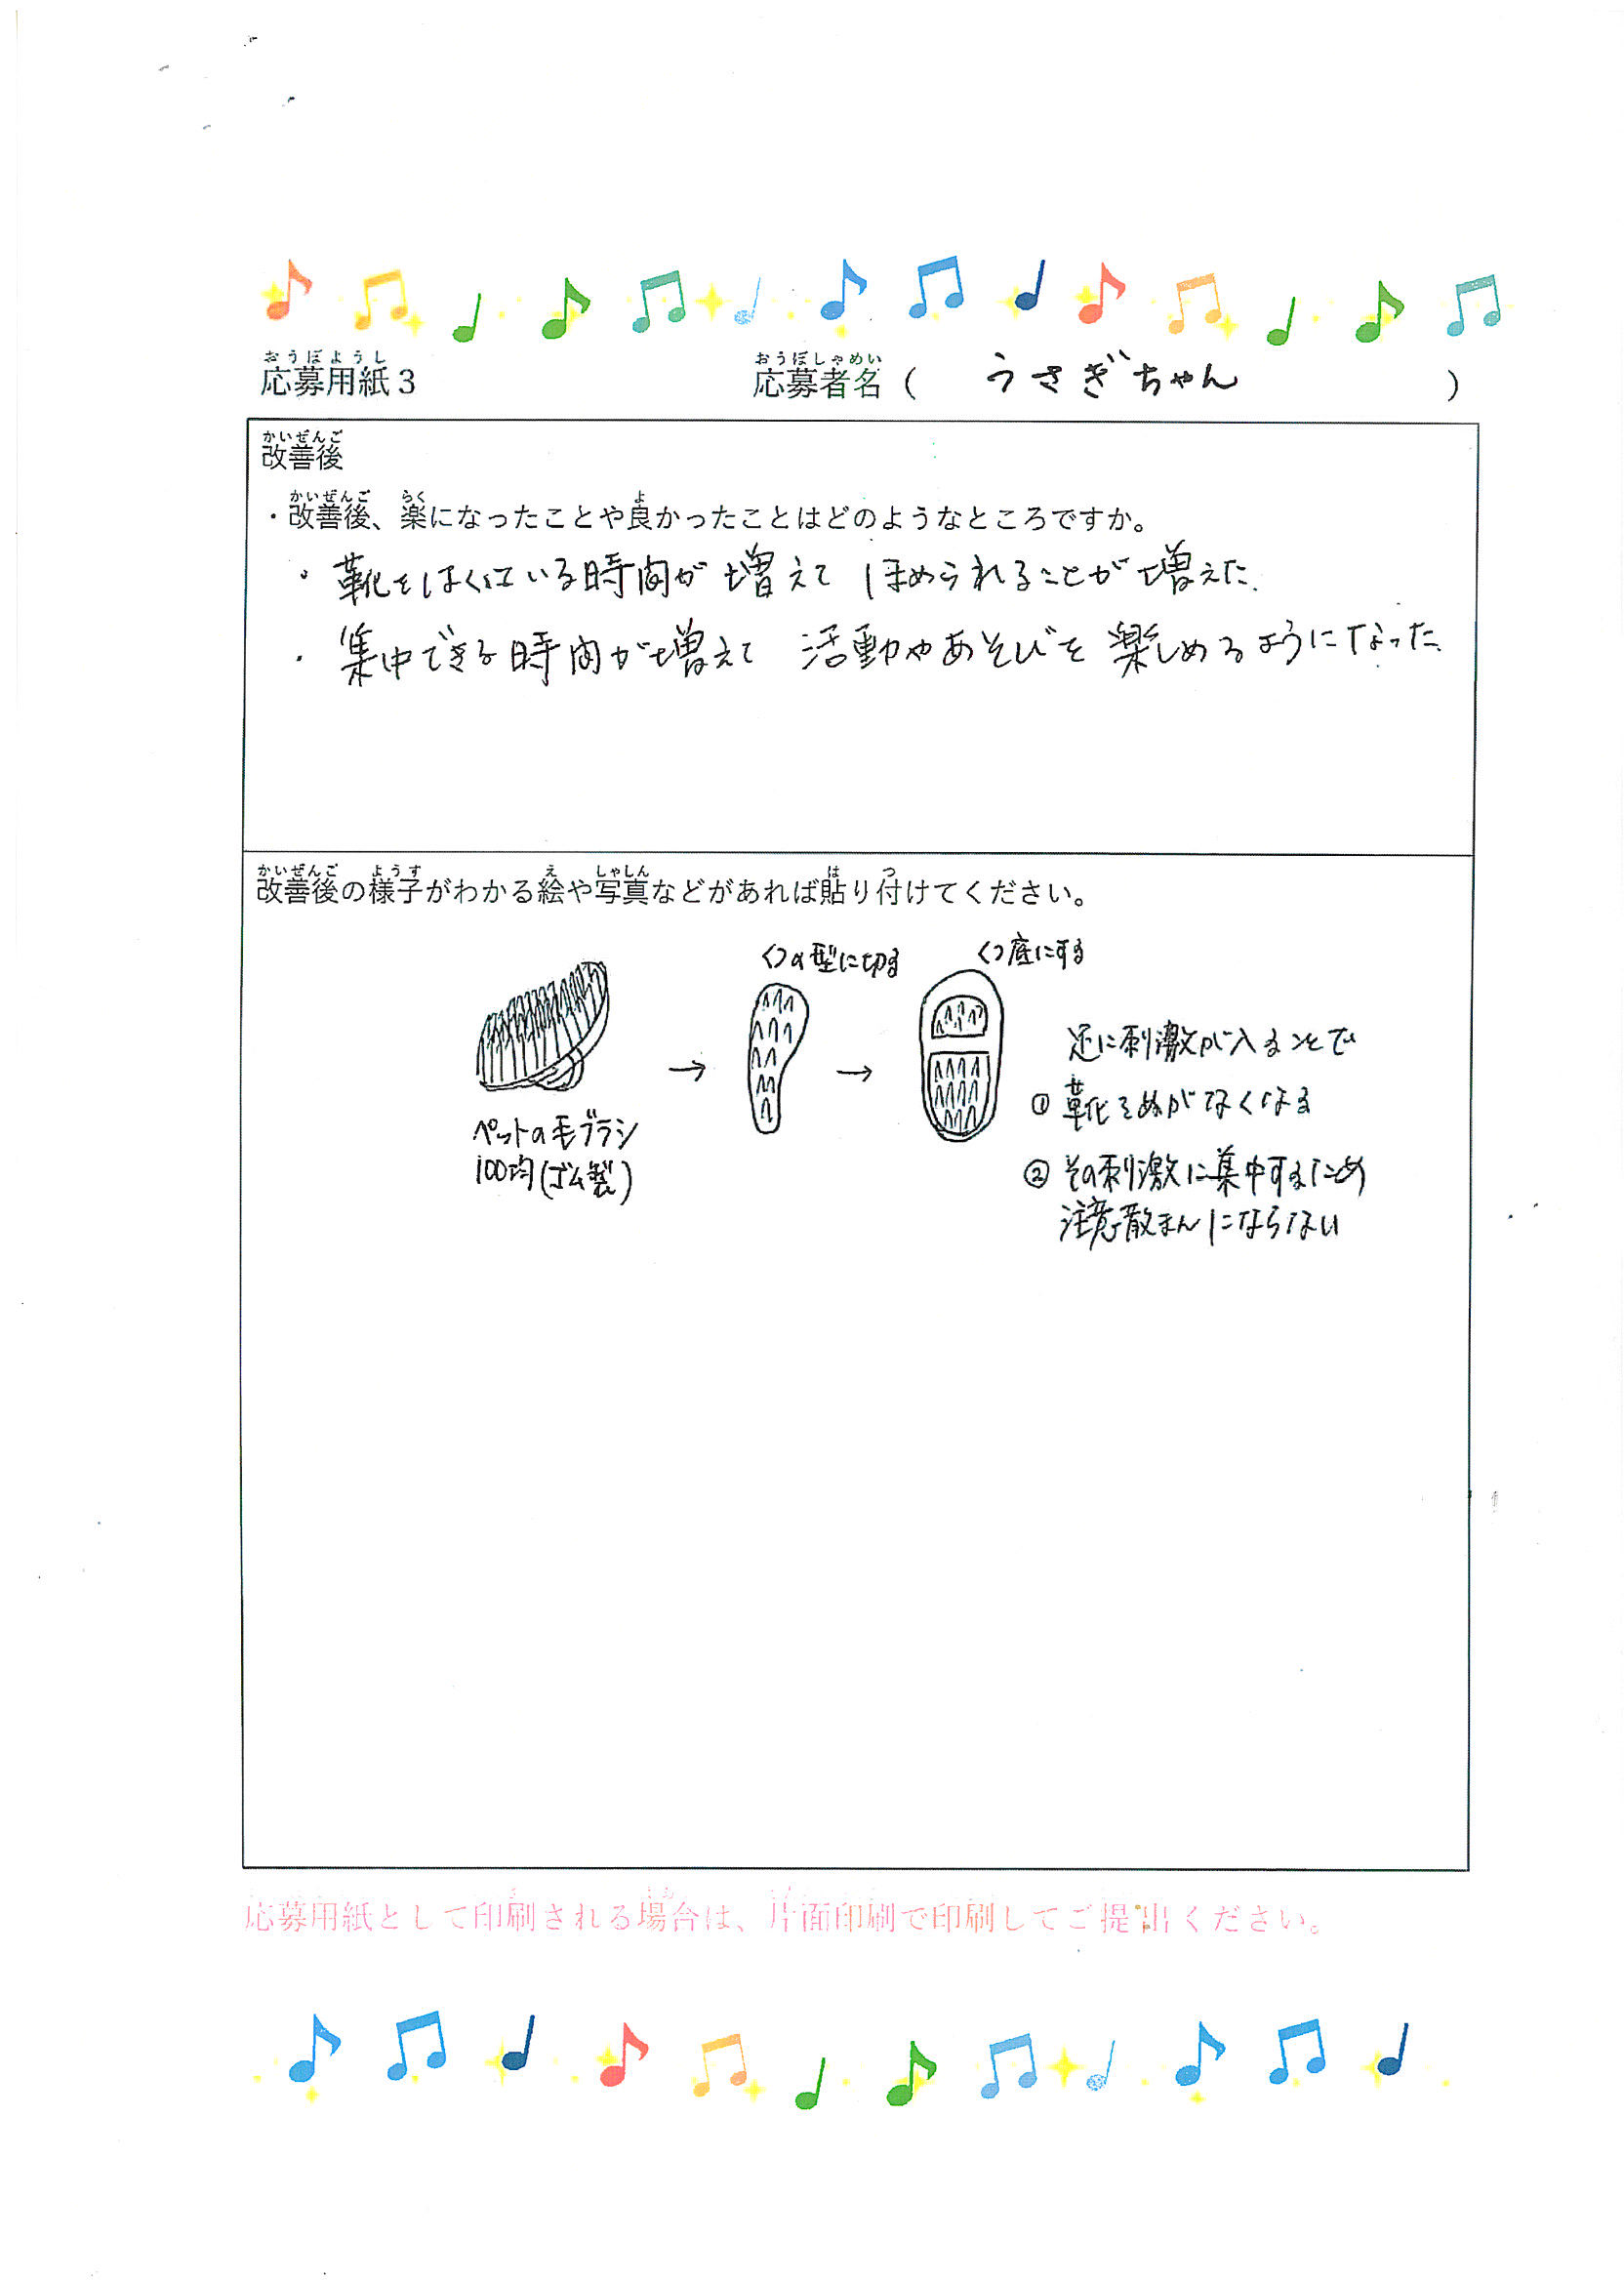 おうぼようし
応募用紙3
おうぼしゃめい
応募者名( うさぎちゃん )
かいぜんご
改善後
かいぜんご らく よ
・改善後、楽になったことや良かったことはどのようなところですか。
・靴をはくている時間が増えて ほめられることが増えた.
・集中できる時間が増えて 活動やあそびを楽しめるようになった.
かいぜんご ようす え しゃしん は つ
改善後の様子がわかる絵や写真などがあれば貼り付けてください。
ペットの毛ブラシ
100均(ゴム製)
→
くつの型に切る
→
くつ底にする
足に刺激が入ることで
① 靴をぬがなくなる
② その刺激に集中するため
注意散まんにならない
応募用紙として印刷される場合は、片面印刷で印刷してご提出ください。